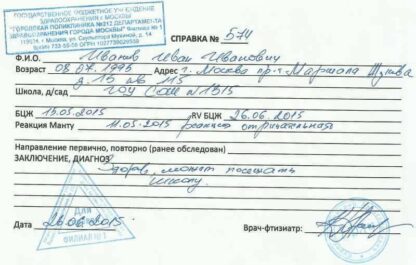 ГОСУДАРСТВЕННОЕ БЮДЖЕТНОЕ УЧРЕЖДЕНИЕ
ЗДРАВООХРАНЕНИЯ г. МОСКВЫ
"ГОРОДСКАЯ ПОЛИКЛИНИКА №212 ДЕПАРТАМЕНТА
ЗДРАВООХРАНЕНИЯ ГОРОДА МОСКВЫ" Филиал № 1
г. Москва, ул. Скульптора Мухиной, д. 14
СПРАВКА № 544
Ф.И.О. Иванов Иван Иванович
Возраст 08.07.1995 Адрес г. Москва пр-т Маршала Жукова
д. 15 кв 115
Школа, д/сад ГОУ СОШ №1315
БЦЖ 15.05.2015 RV БЦЖ 26.06.2015
Реакция Манту 11.05.2015 реакция отрицательная
Направление первично, повторно (ранее обследован)
ЗАКЛЮЧЕНИЕ, ДИАГНОЗ
Здоров, может посещать
школу
Дата 26.06.2015 Врач-фтизиатр:
ДЛЯ
ФИЛИАЛ № 1